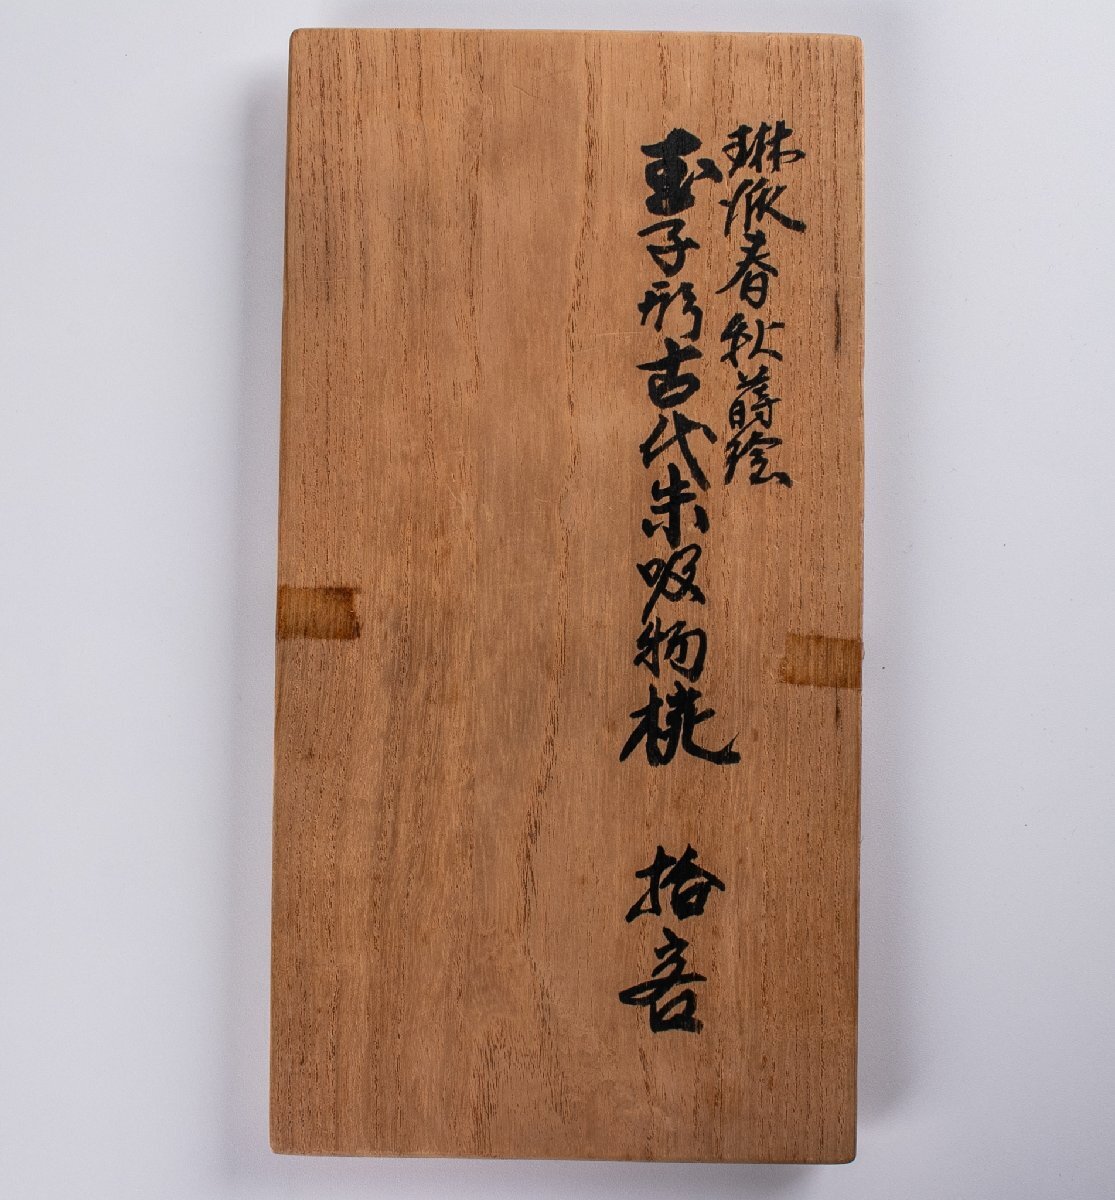 琳派春秋蒔絵
玉子形古代朱吸物椀 拾客